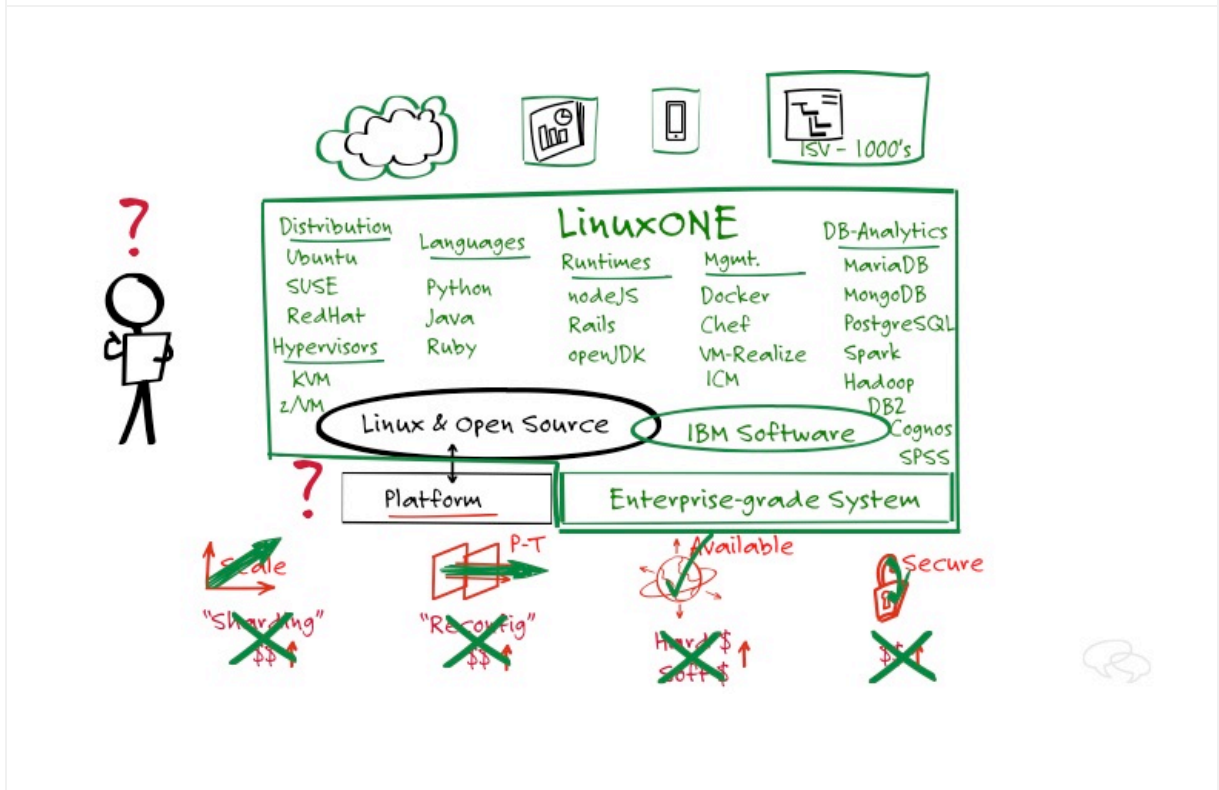 ISV - 1000's
?
LinuxONE
Distribution
Ubuntu
SUSE
RedHat
Hypervisors
KVM
z/VM
Languages
Python
Java
Ruby
Runtimes
nodeJS
Rails
openJDK
Mgmt.
Docker
Chef
VM-Realize
ICM
DB-Analytics
MariaDB
MongoDB
PostgreSQL
Spark
Hadoop
DB2
Cognos
SPSS
Linux & Open Source
IBM Software
?
Platform
Enterprise-grade System
Scale
"Sharding"
$$
P-T
"Reconfig"
$$
Available
Hard $
Soft $
Secure
$$